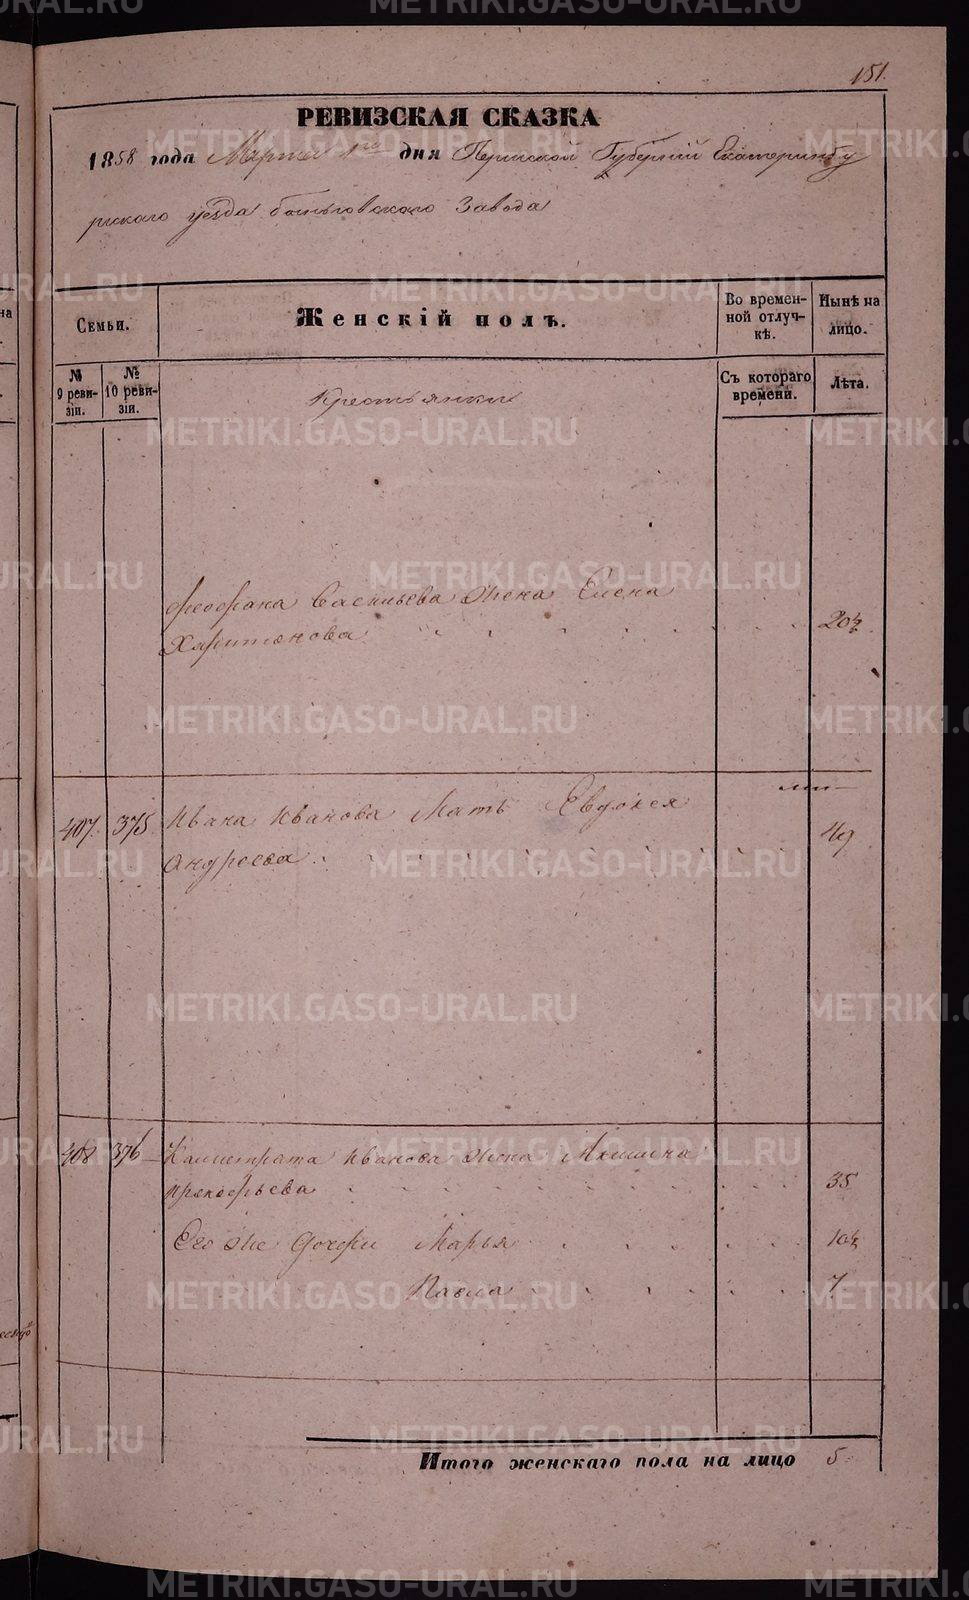 151.
РЕВИЗСКАЯ СКАЗКА
1858 года Марта 1го дня Пермской Губерніи Екатеринбу
ргскаго уезда быньговскаго Завода
Семьи.
Женскій полъ.
Во времен-
ной отлуч-
кѣ.
Нынѣ на
лицо.
№
9 реви-
зіи.
№
10 реви-
зіи.
Съ котораго
времени.
Лѣта.
Крестьянки
Феофана Васильева жена Елена
Харитонова 20½
407. 375 Ивана Иванова Мать Евдокея
Андреева 49
408 376 Калистрата Иванова жена
Прокофьева 35
Его же дочери Марья 10½
Павла 7
Итого женскаго пола на лицо 5
METRIKI.GASO-URAL.RU